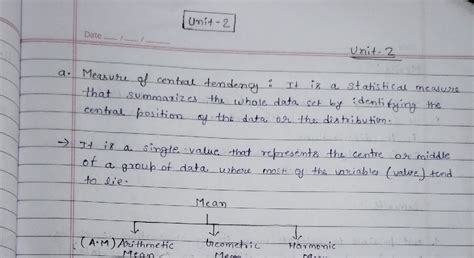 Unit-2
Date __/__/__
Unit-2
a. Measure of central tendency : It is a statistical measure
that summarizes the whole data set by identifying the
central position of the data or the distribution.
→ It is a single value that represents the centre or middle
of a group of data where most of the variables (value) tend
to lie.
Mean
(A.M) Arithmetic Geometric Harmonic
Mean Mean